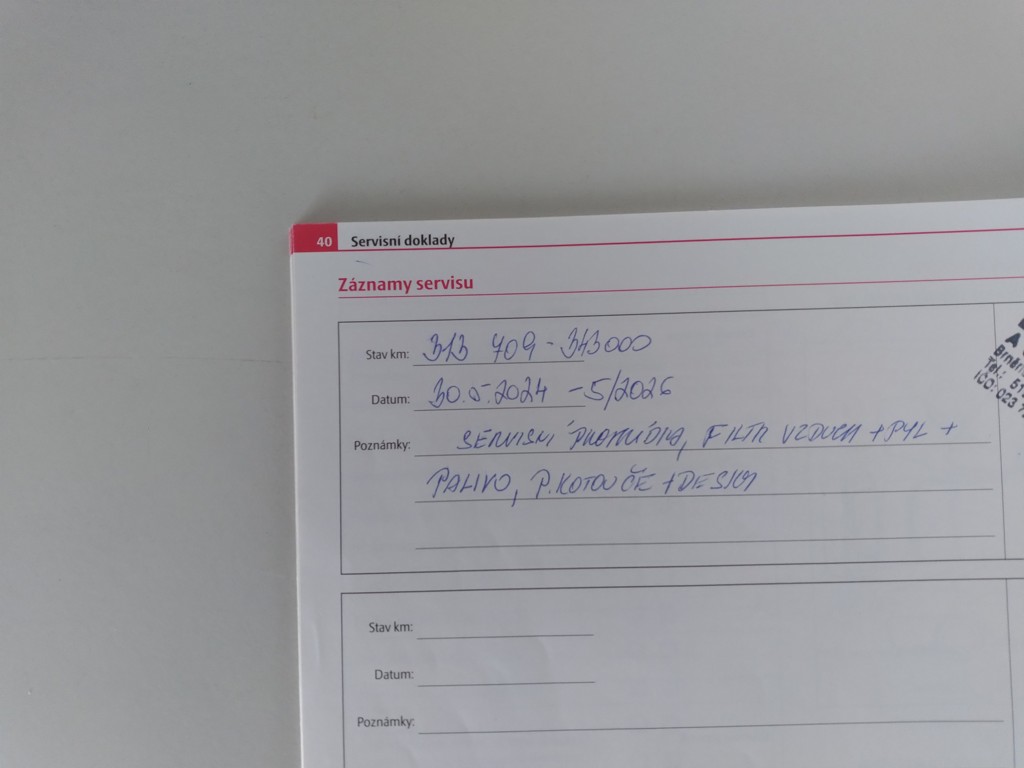 40 Servisní doklady
Záznamy servisu
Stav km: 313 709 - 343000
Datum: 30.5.2024 - 5/2026
Poznámky: SERVISNÍ PROHLÍDKA, FILTR VZDUCH + PYL +
PALIVO, P.KOTOUČE + DESKY
Brněn
Tel.: 51
IČO: 023 7
Stav km:
Datum:
Poznámky: